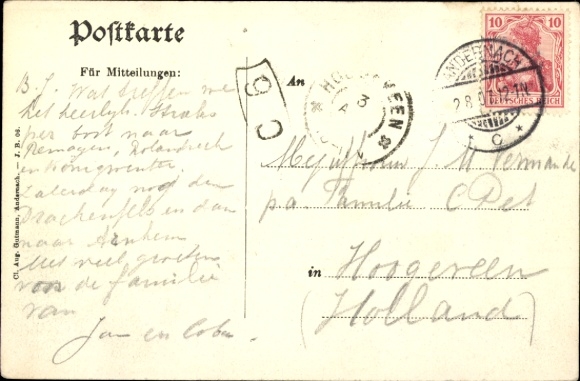 Postkarte
Für Mitteilungen:
An
B. J. Wat treffen we
het heerlijk. Straks
per boot naar
Remagen, Rolandseck
en Königswinter
Zaterdag nog den
Drachenfels en dan
naar Arnhem
Met veel groeten
voor de familie
van
Jan en Coba
Cl. Aug. Gutmann, Andernach. — J. B. 06.
9 C
HOOGEVEEN
10 10
DEUTSCHES REICH
ANDERNACH
C
Mejuffrouw J. M.
p/a Familie
in Hoogeveen
(Holland)